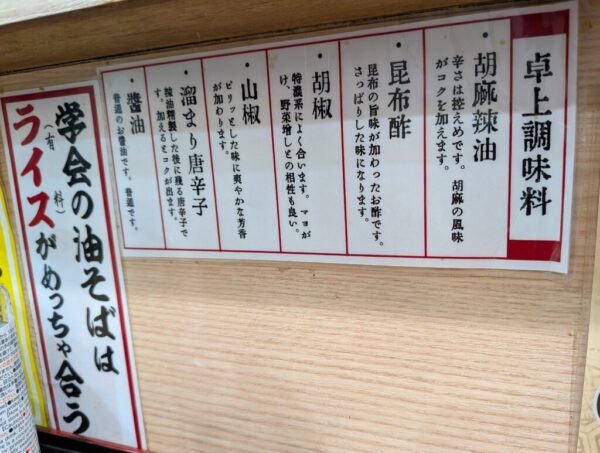 卓上調味料
・胡麻辣油
辛さは控えめです。胡麻の風味
がコクを加えます。
・昆布酢
昆布の旨味が加わったお酢です。
さっぱりした味になります。
・胡椒
特濃系によく合います。マヨが
け、野菜増しとの相性も良い。
・山椒
ピリッとした味に爽やかな芳香
が加わります。
・溜まり唐辛子
辣油精製した後に残る唐辛子で
す。加えるとコクが出ます。
・醬油
普通のお醤油です。普通です。
学会の油そばは
ライスがめっちゃ合う
(有料)